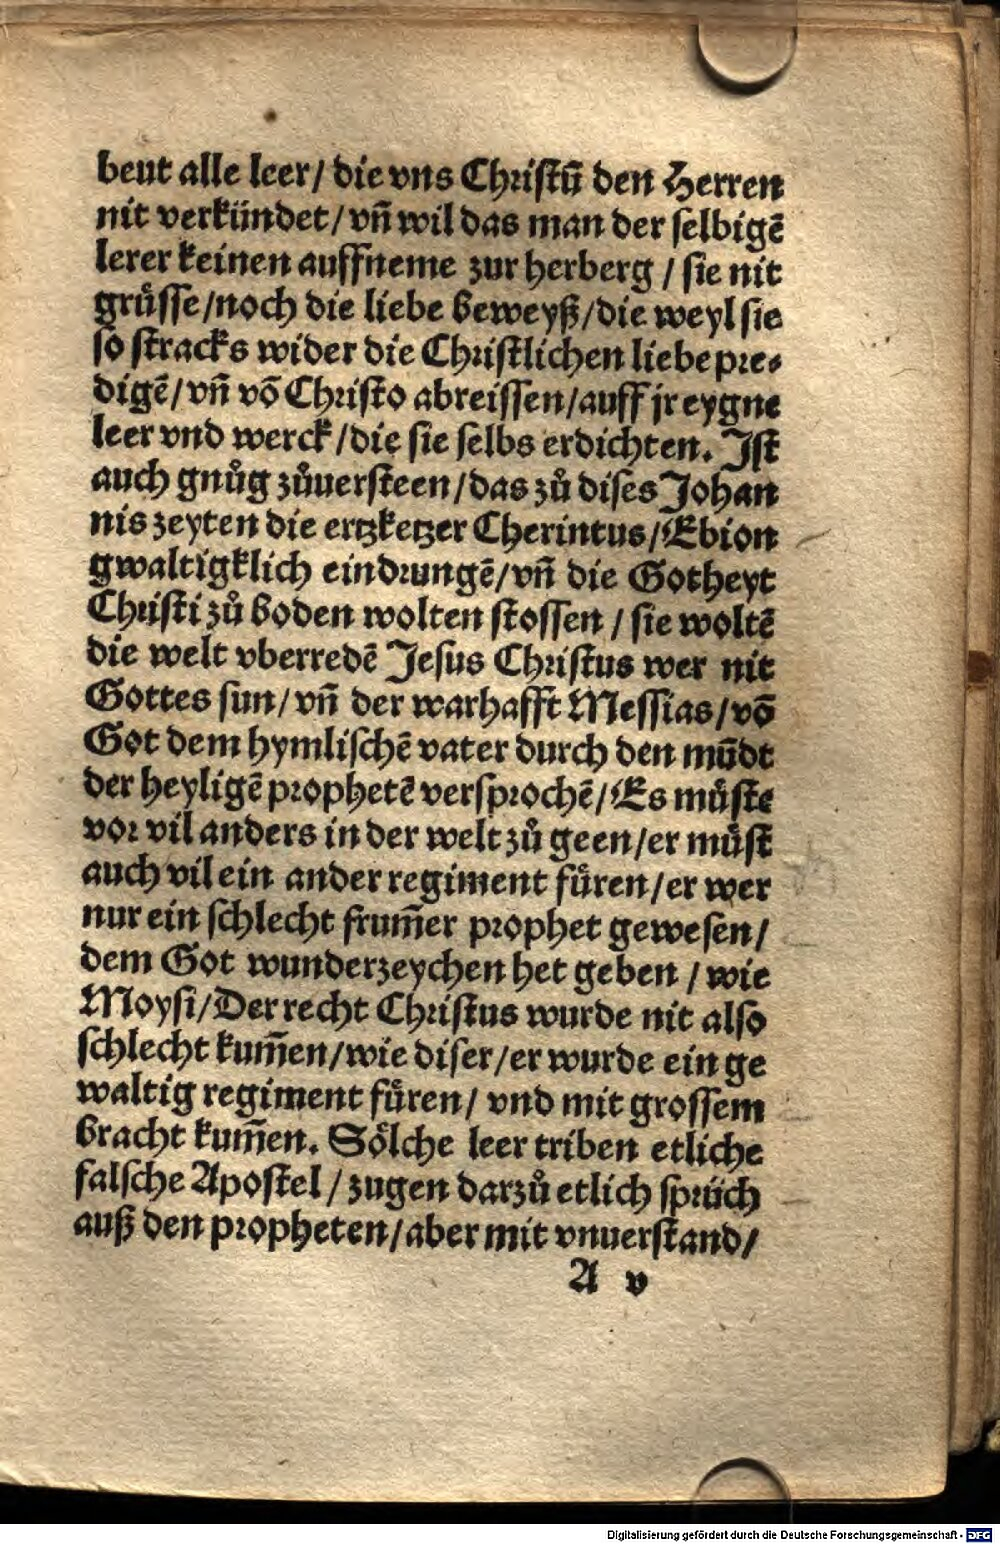 beut alle leer / die vns Christū den Herren
nit verkündet / vn̄ wil das man der selbigē
lerer keinen auffneme zur herberg / sie nit
grůsse / noch die liebe beweyß / die weyl sie
so stracks wider die Christlichen liebe pre⸗
digē / vn̄ vō Christo abreissen / auff jr eygne
leer vnd werck / die sie selbs erdichten. Ist
auch gnůg zůuersteen / das zů dises Johan
nis zeyten die ertzketzer Cherintus / Ebion
gwaltigklich eindrungē / vn̄ die Gotheyt
Christi zů boden wolten stossen / sie woltē
die welt vberredē Jesus Christus wer nit
Gottes sun / vn̄ der warhafft Messias / vō
Got dem hymlischē vater durch den mūdt
der heyligē prophetē versprochē / Es můste
vor vil anders in der welt zů geen / er můst
auch vil ein ander regiment fůren / er wer
nur ein schlecht frum̄er prophet gewesen /
dem Got wunderzeychen het geben / wie
Moysi / Der recht Christus wurde nit also
schlecht kum̄en / wie diser / er wurde ein ge
waltig regiment fůren / vnd mit grossem
bracht kum̄en. Sölche leer triben etliche
falsche Apostel / zugen darzů etlich sprüch
auß den propheten / aber mit vnuerstand /
A v
Digitalisierung gefördert durch die Deutsche Forschungsgemeinschaft - DFG